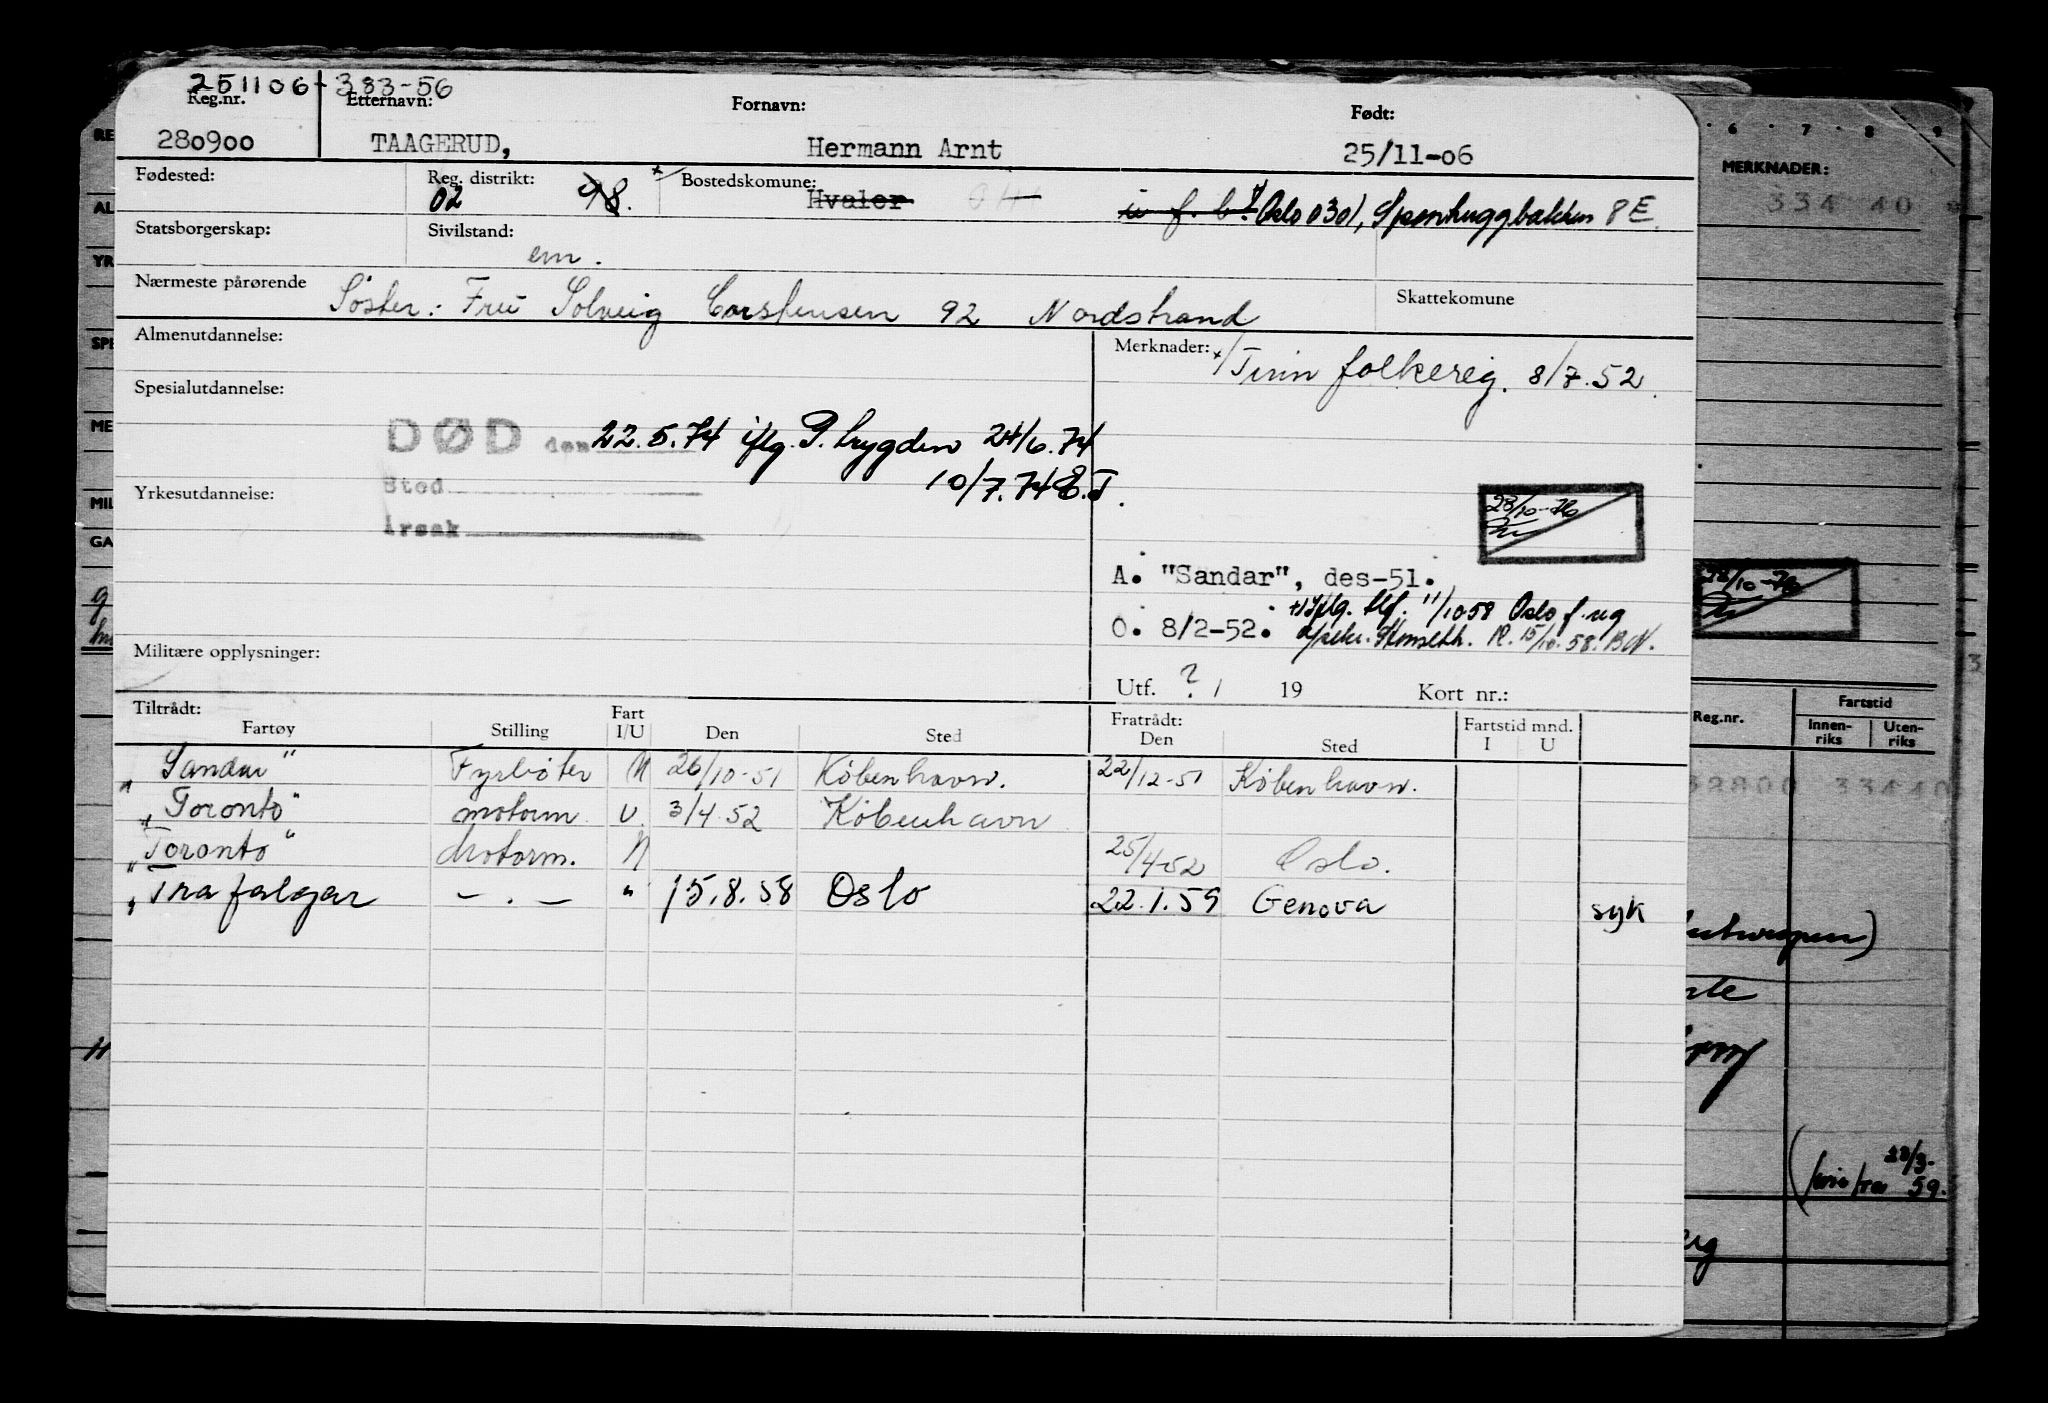 251106-383-56
Reg.nr. Etternavn: Fornavn: Født:
280900 TAAGERUD, Hermann Arnt 25/11-06
Fødested: Reg. distrikt: Bostedskomune:
02 48. Hvaler Oslo 0301, 8E
Statsborgerskap: Sivilstand:
em.
Nærmeste pårørende Skattekomune
Søster: Fru Solveig Carstensen 92 Nordstrand
Almenutdannelse: Merknader:
Tinn folkereg. 8/7.52
Spesialutdannelse:
DØD den 22.5.74 iflg. P. trygden 24/6.74
10/7.74 E.T.
Yrkesutdannelse: Sted
Årsak
28/10-76
A. "Sandar", des-51.
+) Iflg. tlf. 11/10 58 Oslo f.reg
O. 8/2-52. 15/10.58. B.N.
Militære opplysninger:
Utf. ? / 19 Kort nr.:
Tiltrådt: Fratrådt:
Fartøy Stilling Fart I/U Den Sted Den Sted Fartstid mnd. I U
"Sandar" Fyrbøter N 26/10-51 København. 22/12-51 København.
"Toronto" motorm U. 3/4 52 København
"Toronto" Motorm. N 25/4-52 Oslo.
"Trafalgar - . - " 15.8.58 Oslo 22.1.59 Genova syk
6 7 8 9
MERKNADER:
334 40
28/10-76
Reg.nr. Fartstid
Innen-riks Uten-riks
52800 33440
23/3-59.